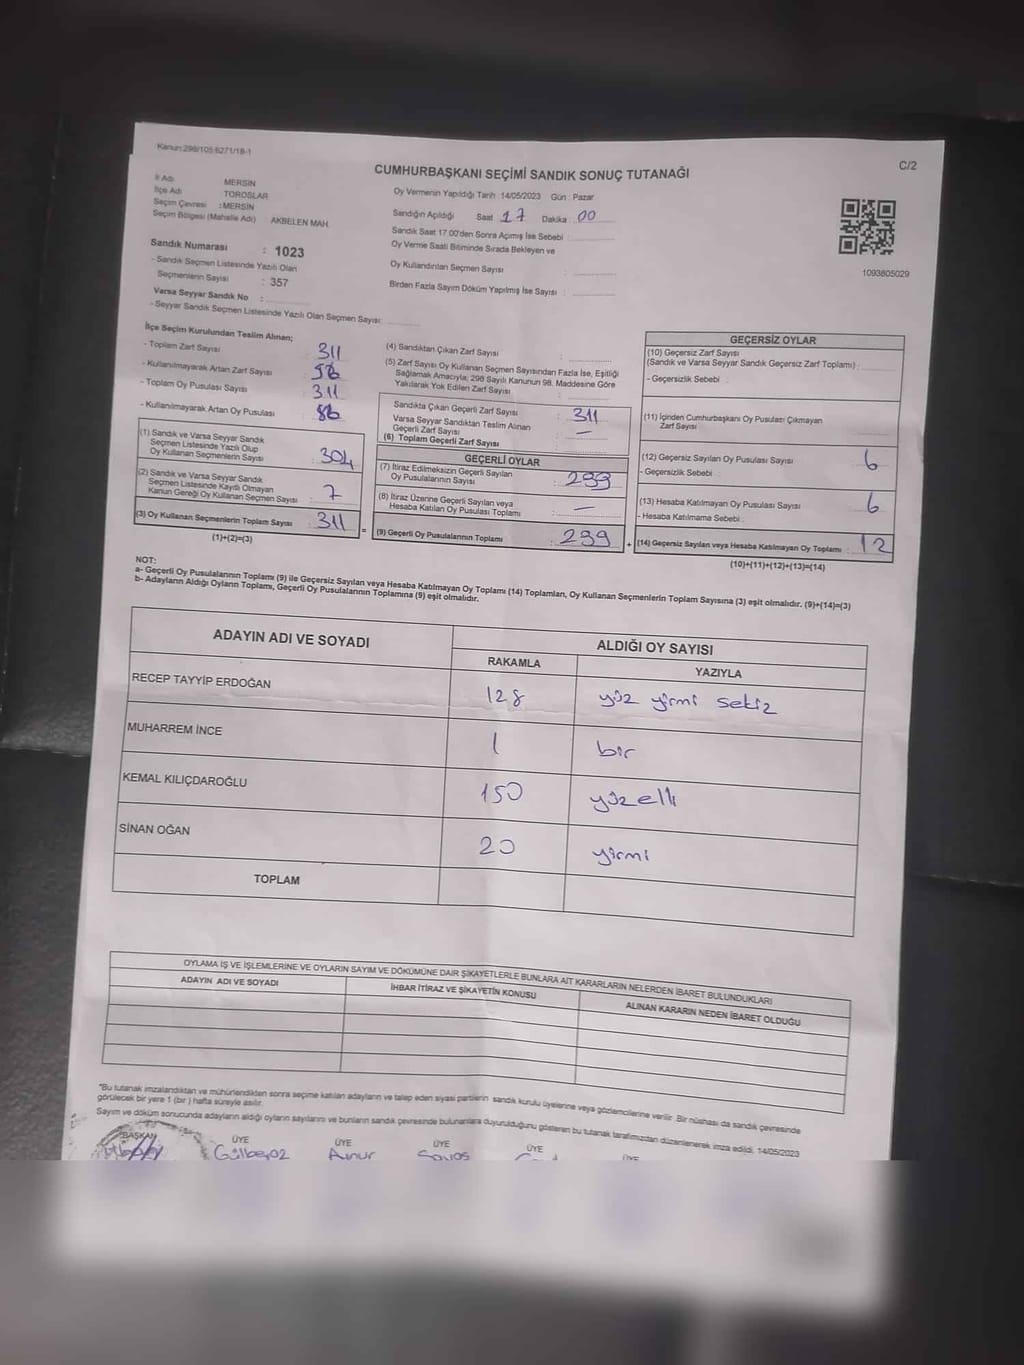 Kanun:298/105:6271/18-1
C/2
CUMHURBAŞKANI SEÇİMİ SANDIK SONUÇ TUTANAĞI
İl Adı MERSİN
İlçe Adı TOROSLAR
Seçim Çevresi :MERSİN
Seçim Bölgesi (Mahalle Adı) AKBELEN MAH.
Oy Vermenin Yapıldığı Tarih :14/05/2023 Gün : Pazar
Sandığın Açıldığı Saat 17 Dakika 00
Sandık Saat 17.00'den Sonra Açılmış İse Sebebi :
Oy Verme Saati Bitiminde Sırada Bekleyen ve
Oy Kullandırılan Seçmen Sayısı :
Birden Fazla Sayım Döküm Yapılmış İse Sayısı :
1093805029
Sandık Numarası : 1023
- Sandık Seçmen Listesinde Yazılı Olan
Seçmenlerin Sayısı : 357
Varsa Seyyar Sandık No :
- Seyyar Sandık Seçmen Listesinde Yazılı Olan Seçmen Sayısı:
İlçe Seçim Kurulundan Teslim Alınan;
- Toplam Zarf Sayısı 311
- Kullanılmayarak Artan Zarf Sayısı
- Toplam Oy Pusulası Sayısı 311
- Kullanılmayarak Artan Oy Pusulası
(1) Sandık ve Varsa Seyyar Sandık
Seçmen Listesinde Yazılı Olup
Oy Kullanan Seçmenlerin Sayısı : 304
(2) Sandık ve Varsa Seyyar Sandık
Seçmen Listesinde Kayıtlı Olmayan
Kanun Gereği Oy Kullanan Seçmen Sayısı : 7
(3) Oy Kullanan Seçmenlerin Toplam Sayısı : 311 =
(1)+(2)=(3)
(4) Sandıktan Çıkan Zarf Sayısı :
(5) Zarf Sayısı Oy Kullanan Seçmen Sayısından Fazla İse, Eşitliği
Sağlamak Amacıyla; 298 Sayılı Kanunun 98. Maddesine Göre
Yakılarak Yok Edilen Zarf Sayısı :
Sandıkta Çıkan Geçerli Zarf Sayısı : 311
Varsa Seyyar Sandıktan Teslim Alınan
Geçerli Zarf Sayısı : —
(6) Toplam Geçerli Zarf Sayısı :
GEÇERLİ OYLAR
(7) İtiraz Edilmeksizin Geçerli Sayılan
Oy Pusulalarının Sayısı : 299
(8) İtiraz Üzerine Geçerli Sayılan veya
Hesaba Katılan Oy Pusulası Toplamı : —
(9) Geçerli Oy Pusulalarının Toplamı : 299 +
GEÇERSİZ OYLAR
(10) Geçersiz Zarf Sayısı
(Sandık ve Varsa Seyyar Sandık Geçersiz Zarf Toplamı) :
- Geçersizlik Sebebi :
(11) İçinden Cumhurbaşkanı Oy Pusulası Çıkmayan
Zarf Sayısı :
(12) Geçersiz Sayılan Oy Pusulası Sayısı : 6
- Geçersizlik Sebebi :
(13) Hesaba Katılmayan Oy Pusulası Sayısı : 6
- Hesaba Katılmama Sebebi :
(14) Geçersiz Sayılan veya Hesaba Katılmayan Oy Toplamı : 12
(10)+(11)+(12)+(13)=(14)
NOT:
a- Geçerli Oy Pusulalarının Toplamı (9) ile Geçersiz Sayılan veya Hesaba Katılmayan Oy Toplamı (14) Toplamları, Oy Kullanan Seçmenlerin Toplam Sayısına (3) eşit olmalıdır. (9)+(14)=(3)
b- Adayların Aldığı Oyların Toplamı, Geçerli Oy Pusulalarının Toplamına (9) eşit olmalıdır.
ADAYIN ADI VE SOYADI ALDIĞI OY SAYISI
RAKAMLA YAZIYLA
RECEP TAYYİP ERDOĞAN 128 yüz yirmi sekiz
MUHARREM İNCE 1 bir
KEMAL KILIÇDAROĞLU 150 yüzelli
SİNAN OĞAN 20 yirmi
TOPLAM
OYLAMA İŞ VE İŞLEMLERİNE VE OYLARIN SAYIM VE DÖKÜMÜNE DAİR ŞİKAYETLERLE BUNLARA AİT KARARLARIN NELERDEN İBARET BULUNDUKLARI
ADAYIN ADI VE SOYADI İHBAR İTİRAZ VE ŞİKAYETİN KONUSU ALINAN KARARIN NEDEN İBARET OLDUĞU
*Bu tutanak imzalandıktan ve mühürlendikten sonra seçime katılan adayların ve talep eden siyasi partilerin sandık kurulu üyelerine veya gözlemcilerine verilir. Bir nüshası da sandık çevresinde
görülecek bir yere 1 (bir ) hafta süreyle asılır.
Sayım ve döküm sonucunda adayların aldığı oyların sayılarını ve bunların sandık çevresinde bulunanlara duyurulduğunu gösteren bu tutanak tarafımızdan düzenlenerek imza edildi. 14/05/2023
BAŞKAN ÜYE ÜYE ÜYE ÜYE ÜYE
Gülbeyaz Aynur Savaş